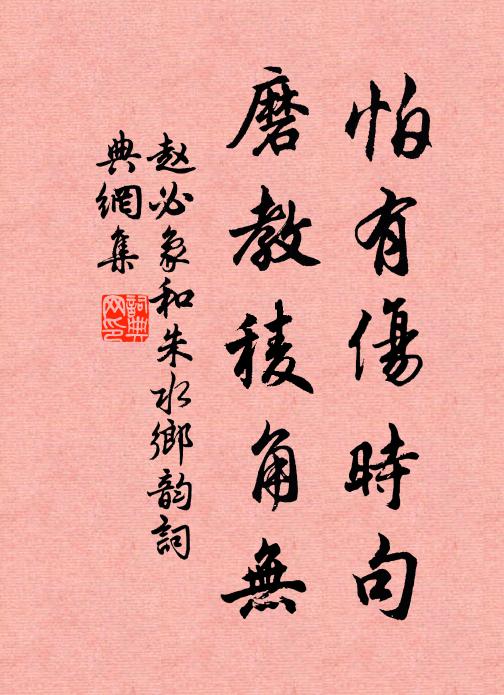 怕有傷時句
磨教稜角無
赵必象和朱水鄉韵詞
典網集
詞典網印